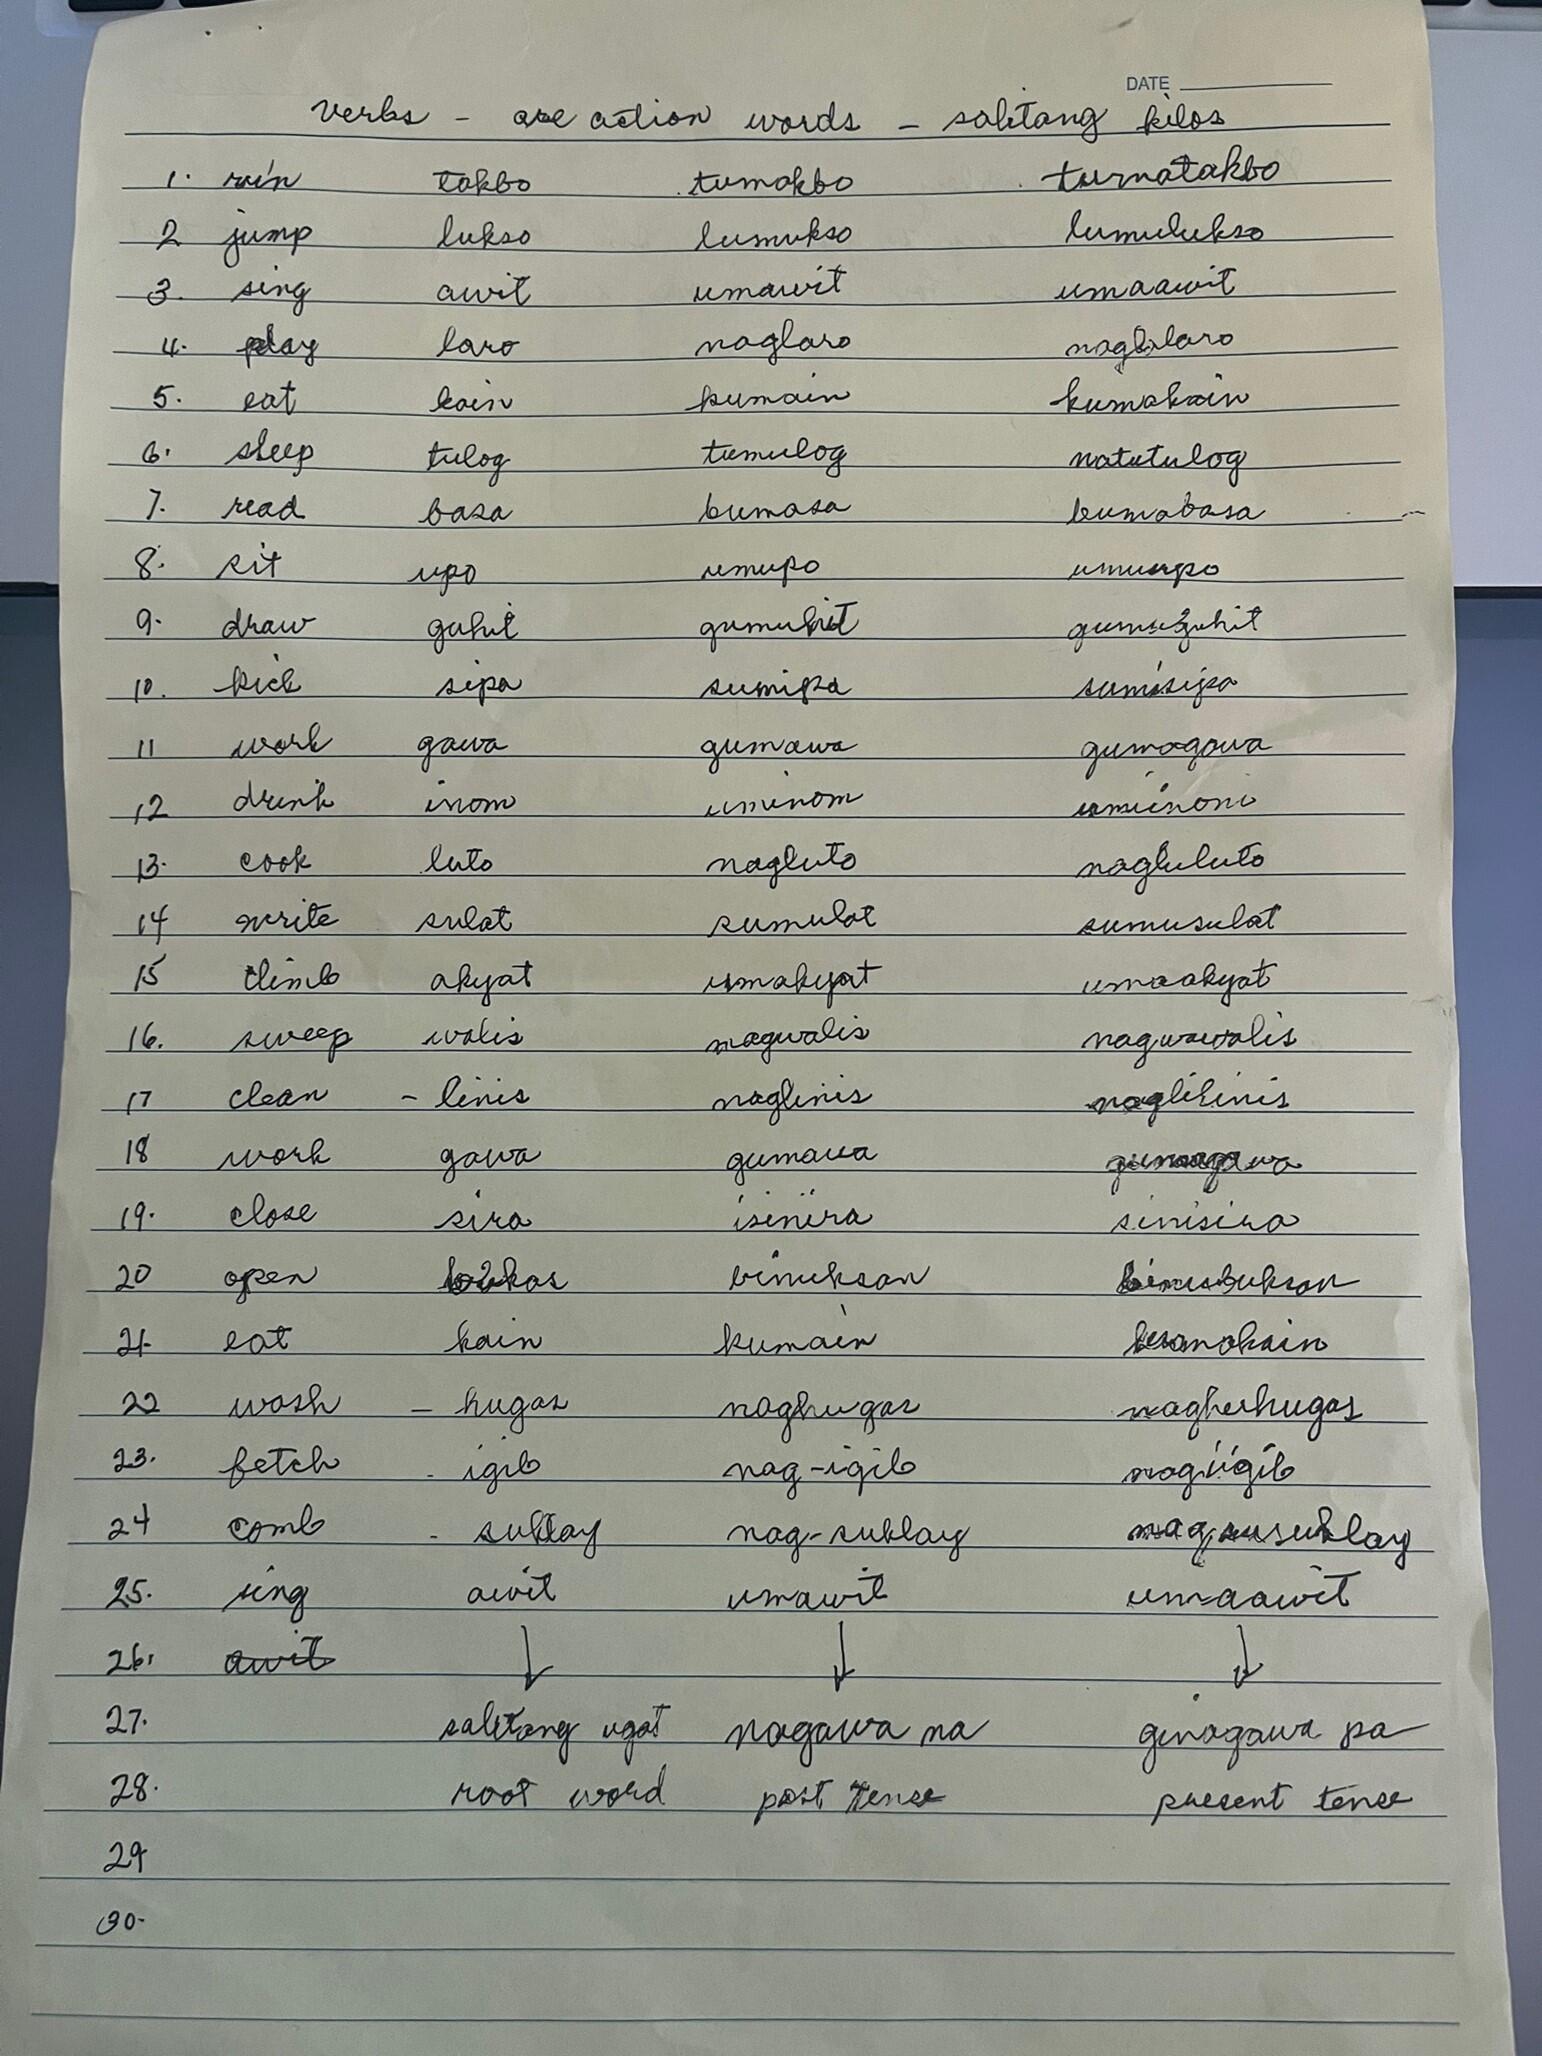 DATE
verbs - are action words - salitang kilos
1. run takbo tumakbo tumatakbo
2 jump lukso lumukso lumulukso
3. sing awit umawit umaawit
4. play laro naglaro naglalaro
5. eat kain kumain kumakain
6. sleep tulog tumulog natutulog
7. read basa bumasa bumabasa
8. sit upo umupo umuupo
9. draw guhit gumuhit gumuguhit
10. kick sipa sumipa sumisipa
11 work gawa gumawa gumagawa
12 drink inom uminom umiinom
13. cook luto nagluto nagluluto
14 write sulat sumulat sumusulat
15 climb akyat umakyat umaakyat
16. sweep walis nagwalis nagwawalis
17 clean - linis naglinis naglilinis
18 work gawa gumawa gumagawa
19. close sira isinira sinisira
20 open bukas binuksan binubuksan
21. eat kain kumain kumakain
22 wash - hugas naghugas naghuhugas
23. fetch - igib nag-igib nagiigib
24 comb - suklay nag-suklay nagsusuklay
25. sing awit umawit umaawit
26. awit ↓ ↓ ↓
27. salitang ugat nagawa na ginagawa pa
28. root word past tense present tense
29
30.